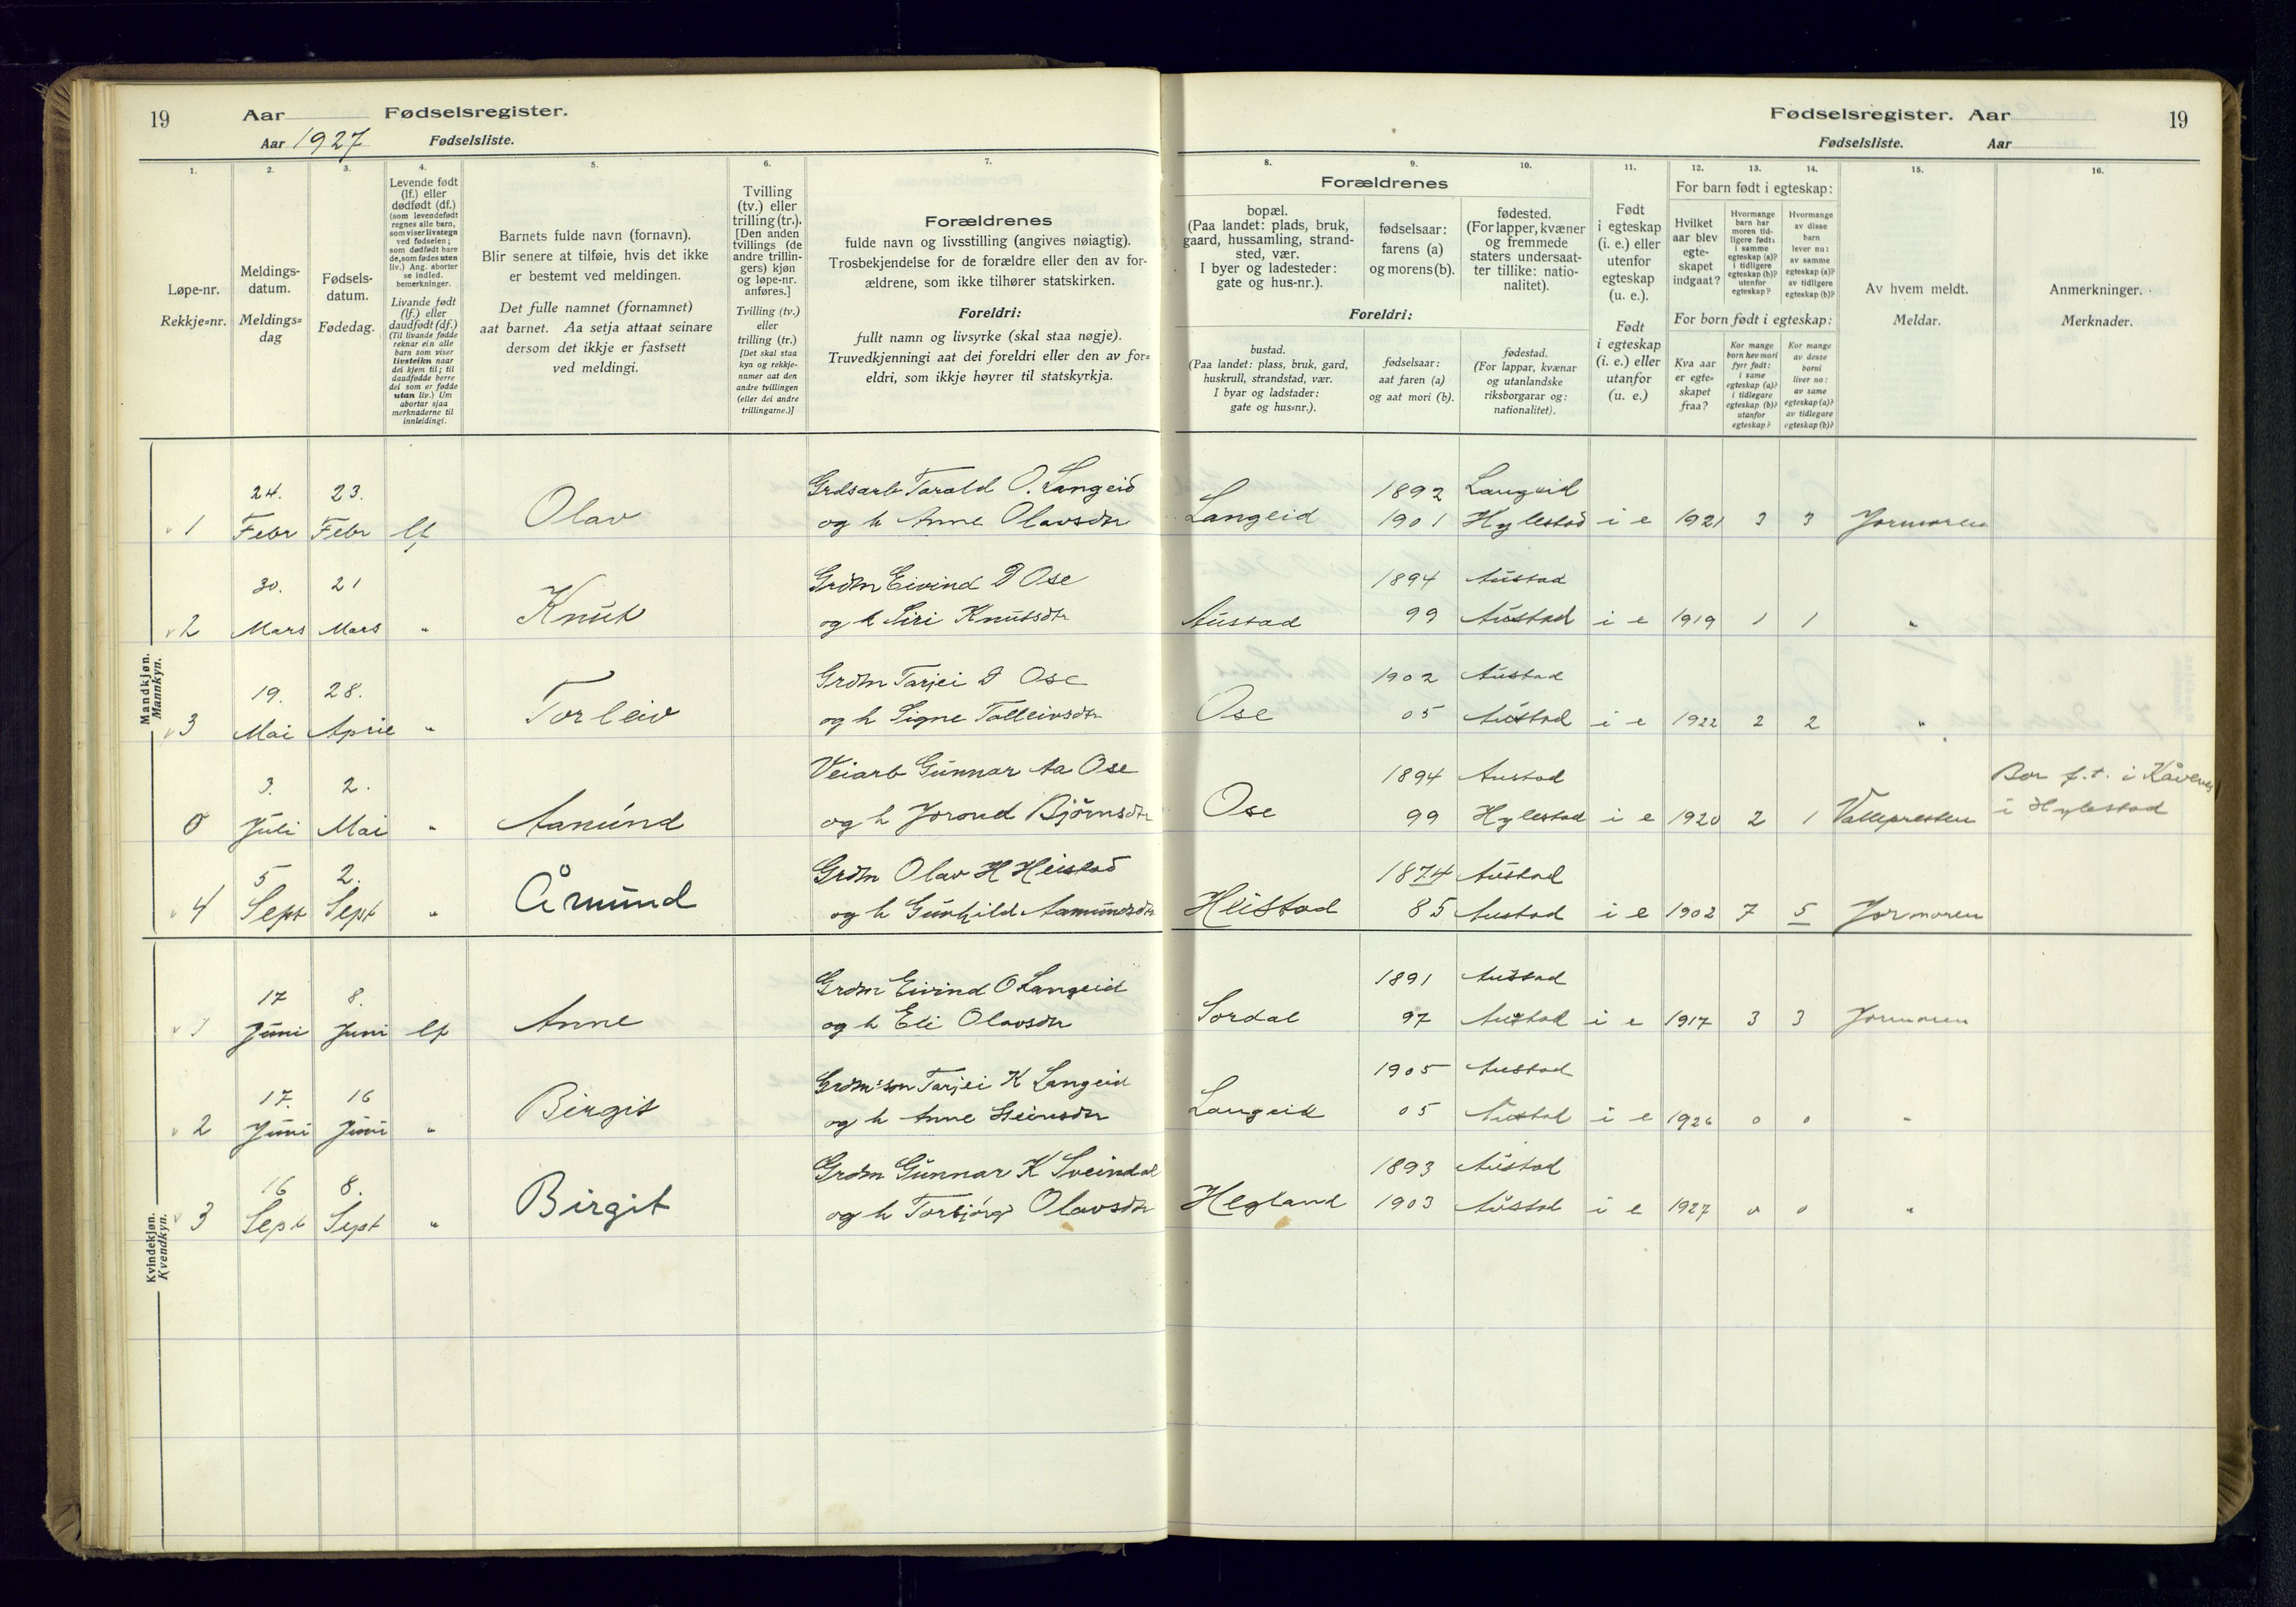 19 Aar Fødselsregister.
Aar 1927 Fødselsliste.
Fødselsregister. Aar 19
Fødselsliste. Aar
1.
Løpe-nr.
Rekkje=nr.
2.
Meldings-
datum.
Meldings=
dag
3.
Fødsels-
datum.
Fødedag.
4.
Levende født
(lf.) eller
dødfødt (df.)
(som levendefødt
regnes alle barn,
som viser livstegn
ved fødselen;
som dødfødt bare
de, som fødes uten
liv.) Ang. aborter
se indled.
bemerkninger.
Livande født
(lf.) eller
daudfødt (df.)
(Til livande fødde
reknar ein alle
barn som viser
livsteikn naar
dei kjem til; til
daudfødde berre
dei som er fødde
utan liv.) Um
abortar sjaa
merknaderne til
innleidingi.
5.
Barnets fulde navn (fornavn).
Blir senere at tilføie, hvis det ikke
er bestemt ved meldingen.
Det fulle namnet (fornamnet)
aat barnet. Aa setja attaat seinare
dersom det ikkje er fastsett
ved meldingi.
6.
Tvilling
(tv.) eller
trilling (tr.).
[Den anden
tvillings (de
andre trillin-
gers) kjøn
og løpe-nr.
anføres.]
Tvilling (tv.)
eller
trilling (tr.)
[Det skal staa
kyn og rekkje-
numer aat den
andre tvillingen
(eller dei andre
trillingarne.)]
7.
Forældrenes
fulde navn og livsstilling (angives nøiagtig).
Trosbekjendelse for de forældre eller den av for-
ældrene, som ikke tilhører statskirken.
Foreldri:
fullt namn og livsyrke (skal staa nøgje).
Truvedkjenningi aat dei foreldri eller den av for=
eldri, som ikkje høyrer til statskyrkja.
Forældrenes
8.
bopæl.
(Paa landet: plads, bruk,
gaard, hussamling, strand-
sted, vær.
I byer og ladesteder:
gate og hus-nr.).
9.
fødselsaar:
farens (a)
og morens (b).
10.
fødested.
(For lapper, kvæner
og fremmede
staters undersaat-
ter tillike: natio-
nalitet).
Foreldri:
bustad.
(Paa landet: plass, bruk, gard,
huskrull, strandstad, vær.
I byar og ladstader:
gate og hus=nr.).
fødselsaar:
aat faren (a)
og aat mori (b).
fødestad.
(For lappar, kvænar
og utanlandske
riksborgarar og:
nationalitet).
11.
Født
i egteskap
(i. e.) eller
utenfor
egteskap
(u. e.).
Født
i egteskap
(i. e.) eller
utanfor
(u. e.)
12. 13. 14.
For barn født i egteskap:
Hvilket
aar blev
egte-
skapet
indgaat?
Hvormange
barn har
moren tid-
ligere født:
i samme
egteskap (a)?
i tidligere
egteskap (b)?
utenfor
egteskap?
Hvormange
av disse
barn
lever nu:
av samme
egteskap (a)?
av tidligere
egteskap (b)?
For born født i egteskap:
Kva aar
er egte=
skapet
fraa?
Kor mange
born hev mori
fyrr født:
i same
egteskap (a)?
i tidlegare
egteskap (b)?
utanfor
egteskap?
Kor mange
av desse
borni
liver no:
av same
egteskap (a)?
av tidlegare
egteskap (b)?
15.
Av hvem meldt.
Meldar.
16.
Anmerkninger.
Merknader.
Mandkjøn.
Mannkyn.
24. 23. Grdsarb Tarald O. Langeid 1892 Langeid
1 Febr Febr lf Olav og h Anne Olavsdtr Langeid 1901 Hylestad i e 1921 3 3 Jormoren
30. 21 Grdm Eivind D Ose 1894 Austad
2 Mars Mars " Knut og h Siri Knutsdtr Austad 99 Austad i e 1919 1 1 "
19. 28. Grdm Tarjei D Ose 1902 Austad
3 Mai April " Torleiv og h Signe Talleivsdtr Ose 05 Austad i e 1922 2 2 "
3. 2. Veiarb Gunnar Aa Ose 1894 Austad Bor f.t. i
0 Juli Mai " Aamund og h Jorond Bjørnsdtr Ose 99 Hylestad i e 1920 2 1 Vallepresten i Hylestad
5 2. Grdm Olav H Heistad 1874 Austad
4 Sept Sept " Åmund og h Gunhild Aamundsdtr Heistad 85 Austad i e 1902 7 5 Jormoren
Kvindekjøn.
Kvendkyn.
17 8. Grdm Eivind O Langeid 1891 Austad
1 Juni Juni lf Anne og h Eli Olavsdtr Sordal 97 Austad i e 1917 3 3 Jormoren
17. 16 Grdm:son Tarjei K Langeid 1905 Austad
2 Juni Juni " Birgit og h Anne Steinsdtr Langeid 05 Austad i e 1926 0 0 "
16 8. Grdm Gunnar K Sveindal 1893 Austad
3 Sept Sept " Birgit og h Torbjørg Olavsdtr Hegland 1903 Austad i e 1927 0 0 "